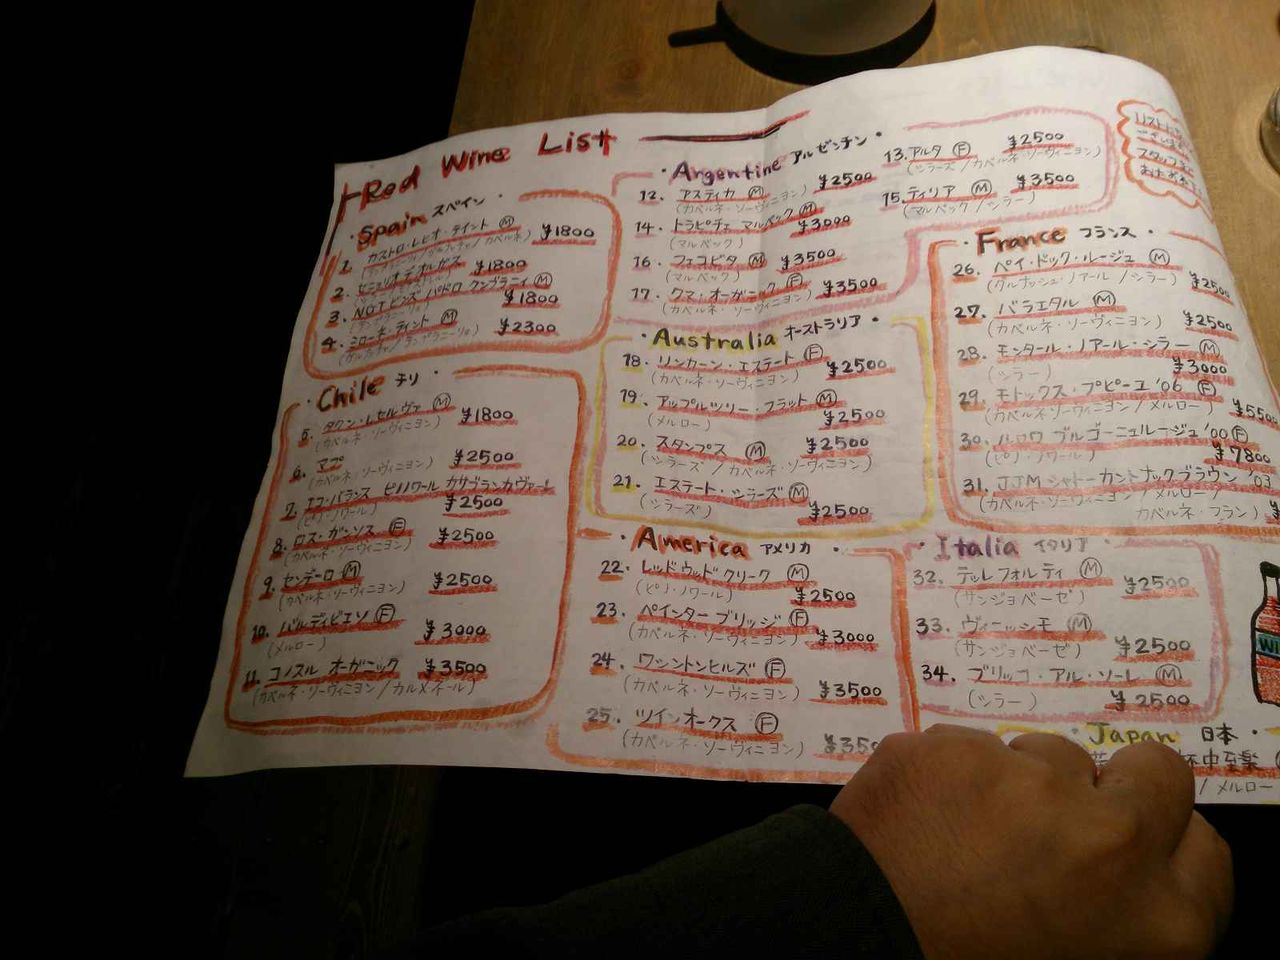 Red Wine List
Spain スペイン
1. カストロ・レヒオ・テイント Ⓜ ¥1800
2. セニョリオ デ オルガス ¥1800
3. Ⓜ
¥1800
4. ミローネ・ティント Ⓜ ¥2300
Chile チリ
5. タウン・レセルヴァ Ⓜ ¥1800
(カベルネ・ソーヴィニヨン)
6. マプ ¥2500
(カベルネ・ソーヴィニヨン)
7. エコ・バランス ピノノワール カサブランカヴァー
(ピノ・ノワール) ¥2500
8. ロス・ガンソス Ⓕ ¥2500
(カベルネ・ソーヴィニヨン)
9. センデーロ Ⓜ ¥2500
(カベルネ・ソーヴィニヨン)
10. バルディビエソ Ⓕ ¥3000
(メルロー)
11. コノスル オーガニック ¥3500
(カベルネ・ソーヴィニヨン/カルメネール)
Argentine アルゼンチン
12. アスティカ Ⓜ ¥2500
(カベルネ・ソーヴィニヨン)
13. アルタ Ⓕ ¥2500
(シラーズ/カベルネ・ソーヴィニヨン)
14. トラピチェ マルベック Ⓜ ¥3000
(マルベック)
15. ティリア Ⓜ ¥3500
(マルベック/シラー)
16. フェコビタ Ⓜ ¥3500
(マルベック)
17. クマ・オーガニック Ⓕ ¥3500
(カベルネ・ソーヴィニヨン)
Australia オーストラリア
18. リンカーン・エステート Ⓕ ¥2500
(カベルネ・ソーヴィニヨン)
19. アップルツリー・フラット Ⓜ
(メルロー) ¥2500
20. スタンプス Ⓜ ¥2500
(シラーズ/カベルネ・ソーヴィニヨン)
21. エステート・シラーズ Ⓜ
(シラーズ) ¥2500
America アメリカ
22. レッドウッドクリーク Ⓜ
(ピノ・ノワール) ¥2500
23. ペインター ブリッジ Ⓕ
(カベルネ・ソーヴィニヨン) ¥3000
24. ワシントンヒルズ Ⓕ
(カベルネ・ソーヴィニヨン) ¥3500
25. ツインオークス Ⓕ
(カベルネ・ソーヴィニヨン) ¥350
France フランス
26. ペイ・ドック・ルージュ Ⓜ
¥2500
27. バラエタル Ⓜ
(カベルネ・ソーヴィニヨン) ¥2500
28. モンタール・ノアール・シラー Ⓜ
(シラー) ¥3000
29. モトックス・プピーユ'06 Ⓕ
(カベルネソーヴィニヨン/メルロー) ¥550
30. ブルゴーニュルージュ'00 Ⓕ
(ピノ・ノワール) ¥7800
31. JJM シャトーカントナックブラウン '03
(カベルネ・ソーヴィニヨン/メルロー/
カベルネ・フラン)
Italia イタリア
32. テッレ フォルティ Ⓜ ¥2500
(サンジョベーゼ)
33. ヴィーッシモ Ⓜ
(サンジョベーゼ) ¥2500
34. ブリッコ・アル・ソーレ Ⓜ
(シラー) ¥2500
Japan 日本
杯中至楽
/メルロー